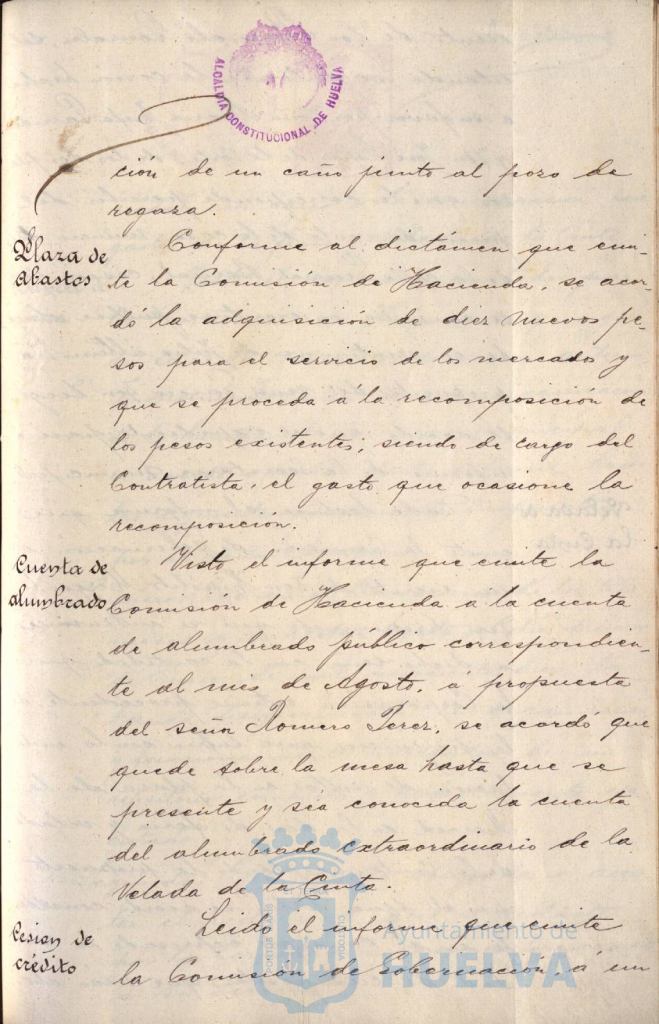 ALCALDIA CONSTITUCIONAL DE HUELVA
ción de un caño junto al pozo de
regaza.
Plaza de
Abastos
Conforme al dictámen que emi-
te la Comisión de Hacienda, se acor-
dó la adquisición de diez nuevos pe-
sos para el servicio de los mercados y
que se proceda á la recomposición de
los pesos existentes; siendo de cargo del
Contratista, el gasto que ocasione la
recomposición.
Cuenta de
alumbrado
Visto el informe que emite la
Comisión de Hacienda a la cuenta
de alumbrado público correspondien-
te al mes de Agosto, á propuesta
del señor Romero Perez, se acordó que
quede sobre la mesa hasta que se
presente y sea conocida la cuenta
del alumbrado extraordinario de la
Velada de la Cinta.
Cesion de
crédito
Leido el informe que emite
la Comisión de Gobernación, á un
Ayuntamiento de
HUELVA